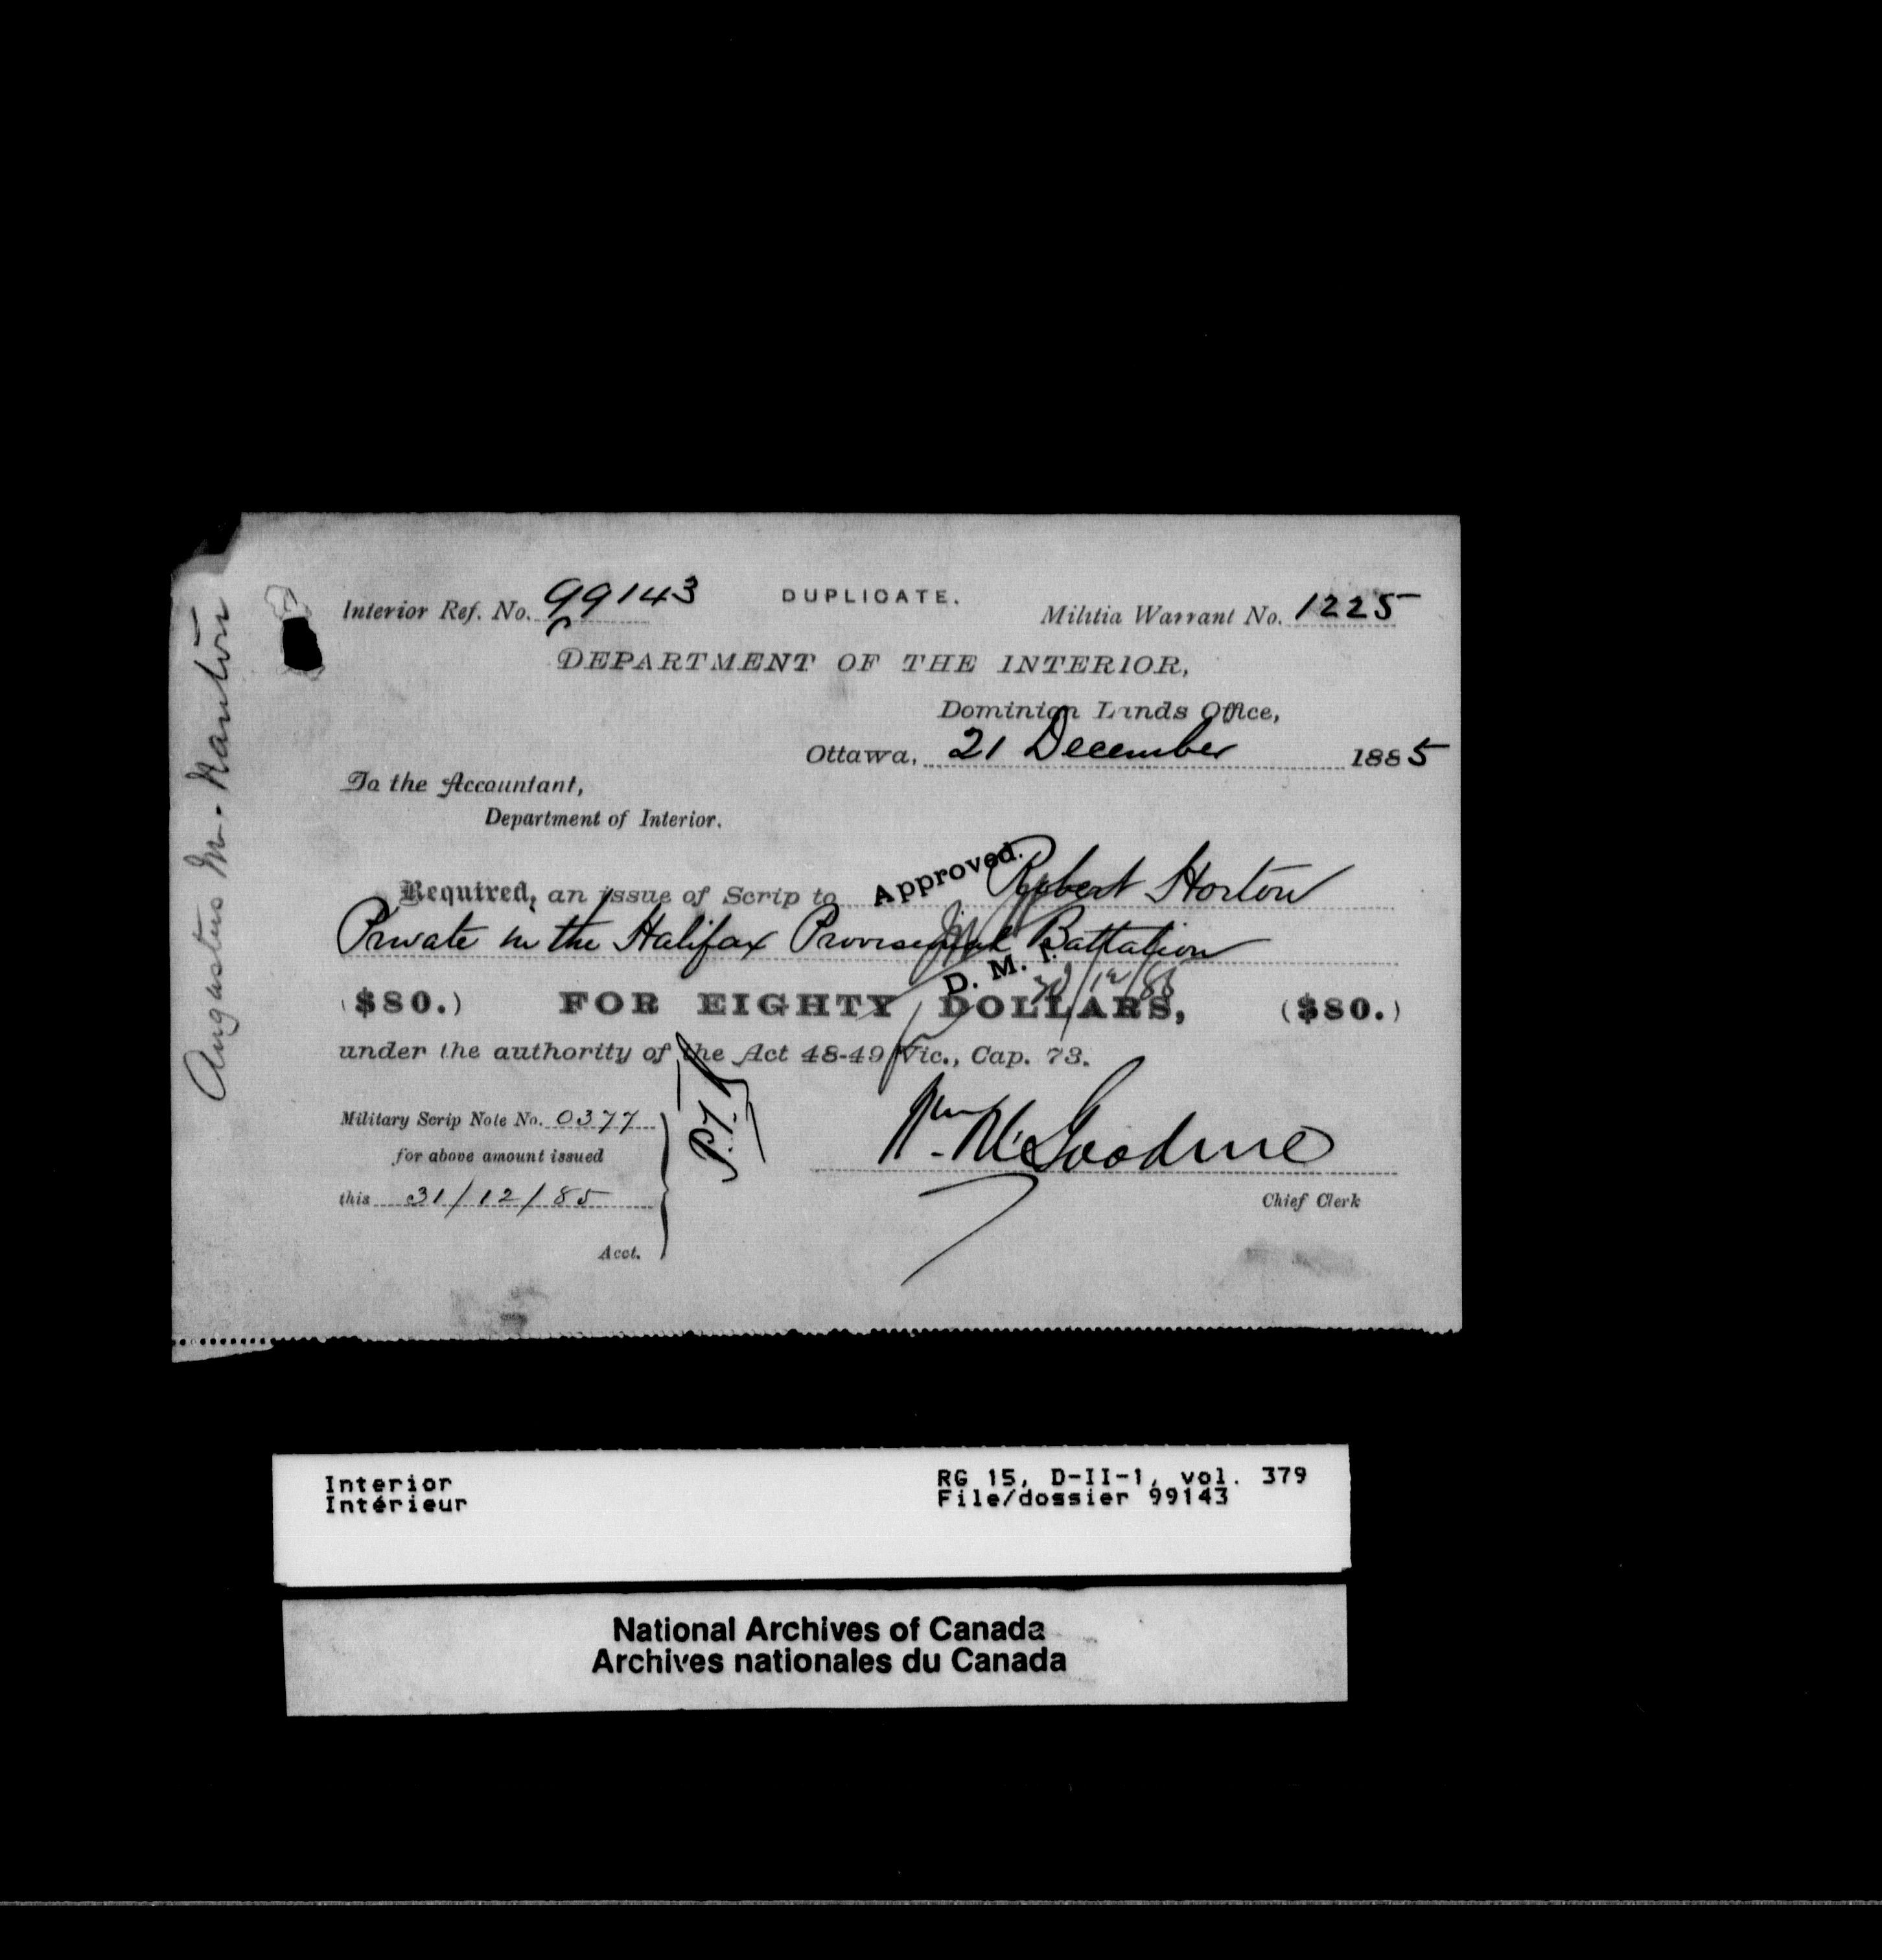 Interior Ref. No. 99143
DUPLICATE.
Militia Warrant No. 1225
DEPARTMENT OF THE INTERIOR,
Dominion Lands Office,
Ottawa, 21 December 1885
To the Accountant,
Department of Interior.
Approved.
Required, an issue of Scrip to Robert Horton
Private in the Halifax Provisional Battalion
D. M. I.
($80.) FOR EIGHTY DOLLARS, ($80.)
under the authority of the Act 48-49 Vic., Cap. 73.
Military Scrip Note No. 0377
for above amount issued
this 31/12/85
Acct.
Chief Clerk
Augustus M.
Interior
Intérieur
RG 15, D-II-1, vol. 379
File/dossier 99143
National Archives of Canada
Archives nationales du Canada